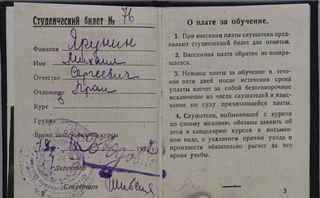 Студенческий билет № 76
Фамилия Ярунин
Имя Михаил
Отчество Сергеевич
Отдел
Курс
Группа
Время
Директор
Секретарь
2
О плате за обучение.
1. При внесении платы слушатели пред‑
являют студенческий билет для отметки.
2. Внесенная плата обратно не возвра‑
щается.
3. Невзнос платы за обучение в тече‑
ние пяти дней после истечения срока
уплаты влечет за собой безоговорочное
исключение из числа слушателей и взыска‑
ние по суду причитающейся платы.
4. Слушатели, выбывающий с курсов
по своему желанию, обязаны заявить об
этом в канцелярию курсов в письмен‑
ном виде, с указанием причин ухода и
произвести обязательно расчет за все
время учебы.
3